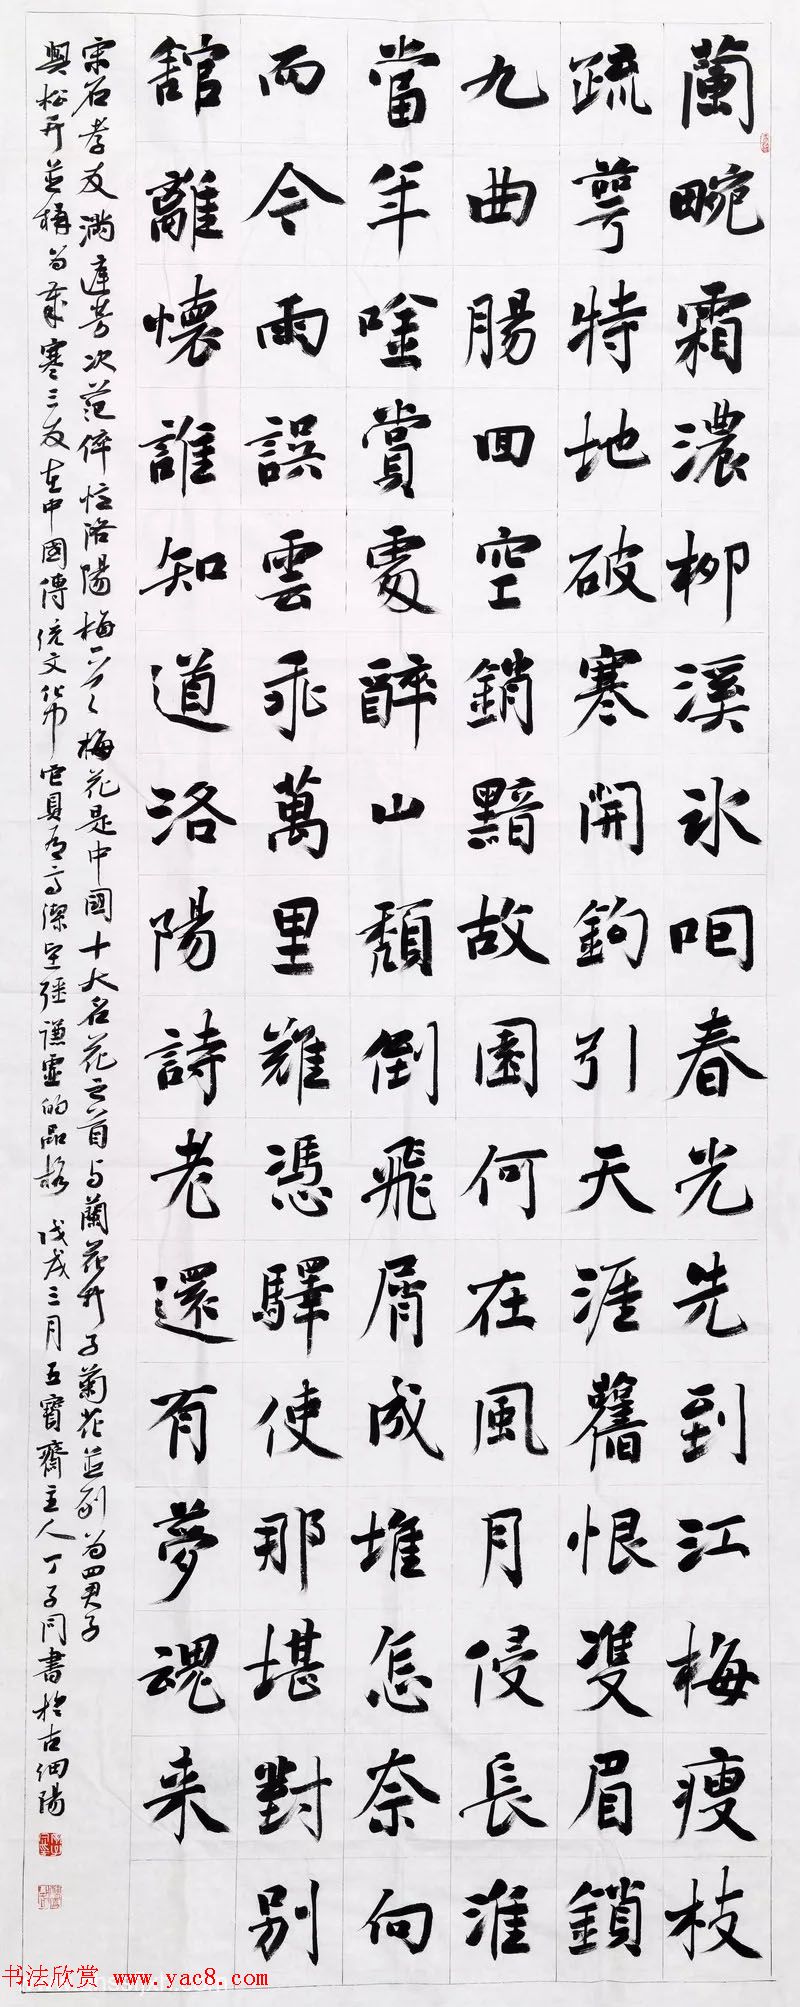 蘭畹霜濃柳溪氷咽春光先到江梅瘦枝
疏萼特地破寒開鉤引天涯舊恨雙眉鎖
九曲腸回空銷黯故園何在風月侵長淮
當年唫賞處醉山頹倒飛屑成堆怎奈向
而今雨誤雲乖萬里難憑驛使那堪對別
館離懷誰知道洛陽詩老還有夢魂来
宋石孝友滿庭芳次范倅忆洛陽梅 梅花是中國十大名花之首与蘭花竹子菊花並列为四君子
與松竹並稱为歲寒三友在中國傳统文化中它具有高潔坚强謙虛的品格 戊戌三月五寶齋主人丁子同書於古细陽
书法欣赏 www.yac8.com